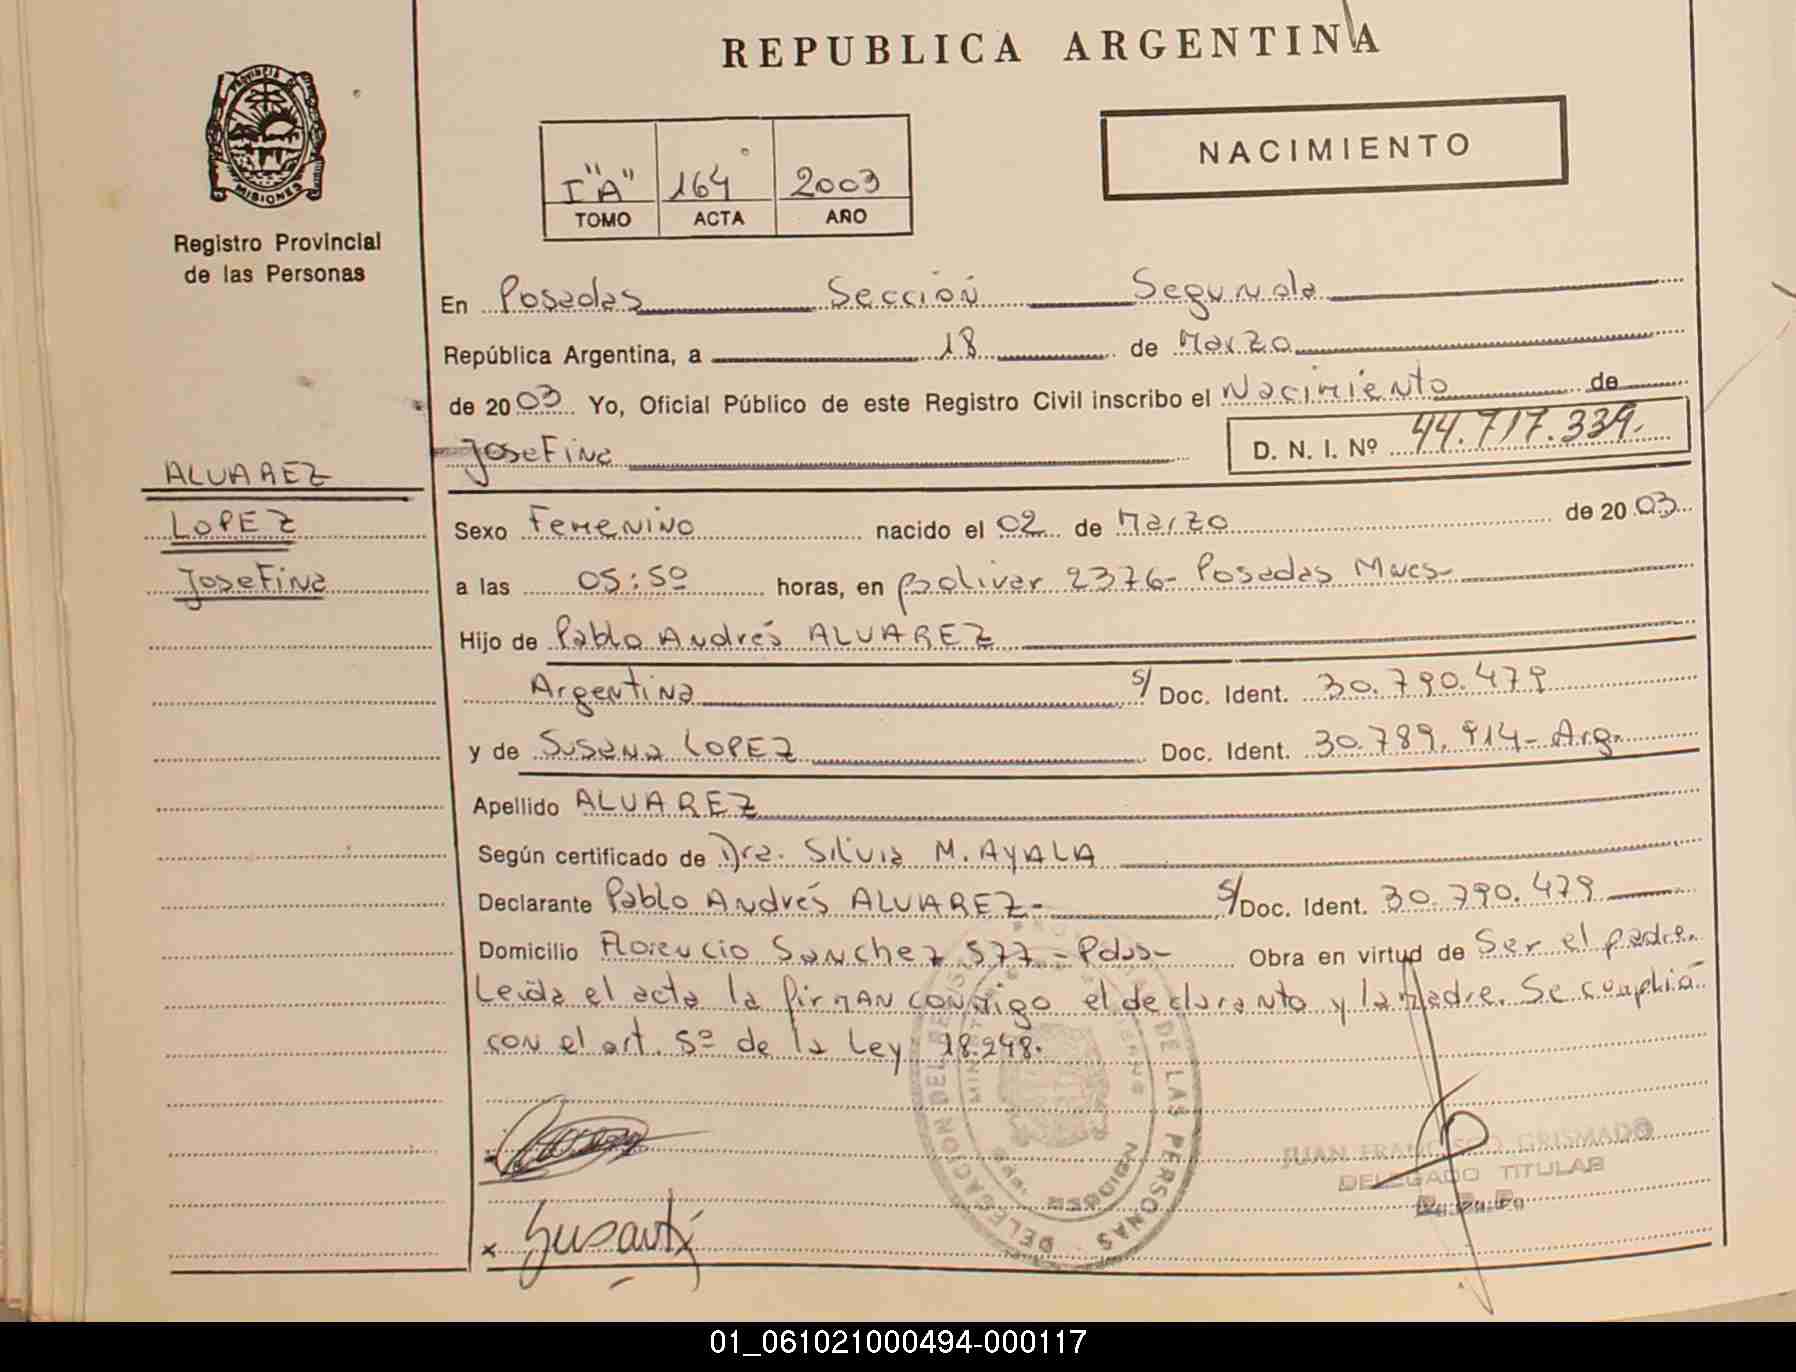 REPUBLICA ARGENTINA
PROVINCIA DE
MISIONES
Registro Provincial
de las Personas
I "A" 164 2003
TOMO ACTA AÑO
NACIMIENTO
En Posadas Sección Segunda
República Argentina, a 18 de Marzo
de 2003 Yo, Oficial Público de este Registro Civil inscribo el Nacimiento de
Josefina D. N. I. Nº 44.717.339.
ALVAREZ
LOPEZ
Josefina
Sexo Femenino nacido el 02 de Marzo de 2003
a las 05:50 horas, en Bolivar 2376- Posadas Mnes-
Hijo de Pablo Andrés ALVAREZ
Argentina s/ Doc. Ident. 30.790.479
y de Susana LOPEZ Doc. Ident. 30.789.914- Arg.
Apellido ALVAREZ
Según certificado de Dra. Silvia M. AYALA
Declarante Pablo Andrés ALVAREZ- s/ Doc. Ident. 30.790.479
Domicilio Florencio Sanchez 577 - Pdas- Obra en virtud de Ser el padre.
Leida el acta la firman conmigo el declarante y la madre. Se cumplió
con el art. 5º de la Ley 18.248.
DELEGACION DEL DE LAS PERSONAS
JUAN FRANCISCO GRISMADO
DELEGADO TITULAR
01_061021000494-000117